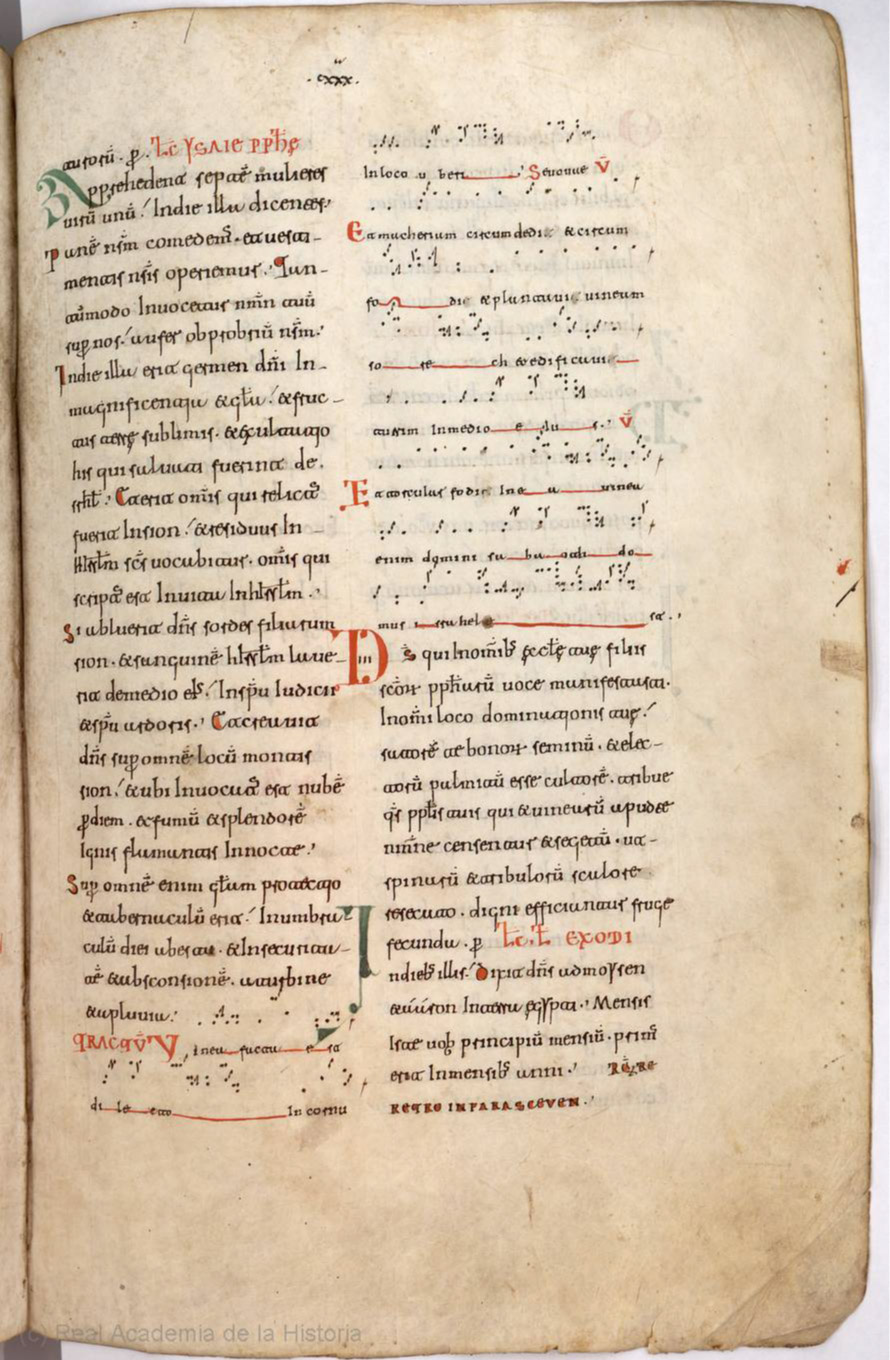 .cxxx.
auroru̅ . p̱. Lc̅ YSAIE PPHE̅
Apprehendent septe̅ mulieres
uiru̅ unu̅ / In die illa dicentes.
Pane̅ nr̅m comedem̅ . et uesti-
mentis nr̅is operiemus . Tan-
tu̅modo Inuocetur nm̅n tuu̅
sup̱ nos / aufer obprobriu̅ nr̅m.
In die illa erit germen dn̅i In
magnificentia & gl̅a / & fruc-
tus terrę sublimis . & exultatio
his qui saluati fuerint de
isrl̅ . Et erit om̅is qui relict̅
fuerit In sion / & residuus In
hrl̅m sc̅s uocabitur . om̅is qui
script̅ est In uita In hrl̅m .
Si abluerit dn̅s sordes filiarum
sion . & sanguine̅ hrl̅m laue-
rit de medio ei̅ / In sp̅u Iudicii
& sp̅u ardoris . Et creauit
dn̅s sup̱ omne̅ locu̅ montis
sion / & ubi Inuocat̅ est nube̅
p̱ diem . & fumu̅ & splendore̅
Ignis flammantis In nocte .
Sup̱ omne̅ enim gl̅am protectio
& tabernaculu̅ erit / In umbra-
culu̅ diei ab estu . & In securitat-
te̅ & absconsione̅ . a turbine
& a pluuia.
TRAC̅ V inea facta est
di le cto In cornu
In loco u beri Seuouae V̅
Et macherium circumdedit & circum
fo dit & plantauit uineam
so re ch & edificauit
turrim In medio e iu s. V̅
Et torcular fodit In e a uinea
enim domini sa ba oth do
mus israhel est.
Ds̅ qui In om̅ib; ęcclę tuę filiis
sc̅oꝝ pph̅aru̅ uoce manifestasti.
In om̅i loco dominationis tuę /
satore̅ te bonoꝝ seminu̅ . & elec-
toru̅ palmitu̅ esse cultore̅ . tribue
q̅s ppl̅is tuis qui & uinearu̅ apud te
nm̅ne censentur & segetu̅ . ut
spinaru̅ & tribuloru̅ scalore
resecato . digni efficiantur fruge
fecunda . p̱ Lc̅ L̅ EXODI
In dieb; illis / Dixit dn̅s ad moysen
& aaron In terra egypti . Mensis
Iste uob̅ principiu̅ mensiu̅ . prim̅
erit In mensib; anni .
IN PARASCEVEN .
(c) Real Academia de la Historia